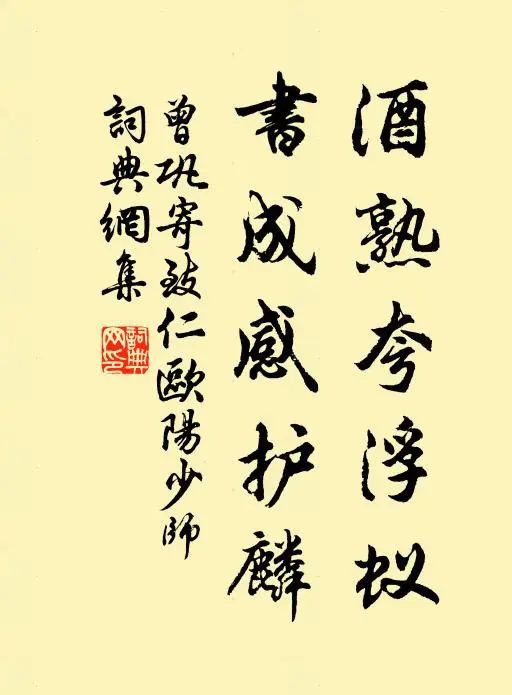 酒熟夸浮蚁
书成感护麟
曾巩寄致仁歐陽少師
詞典網集
詞典網印